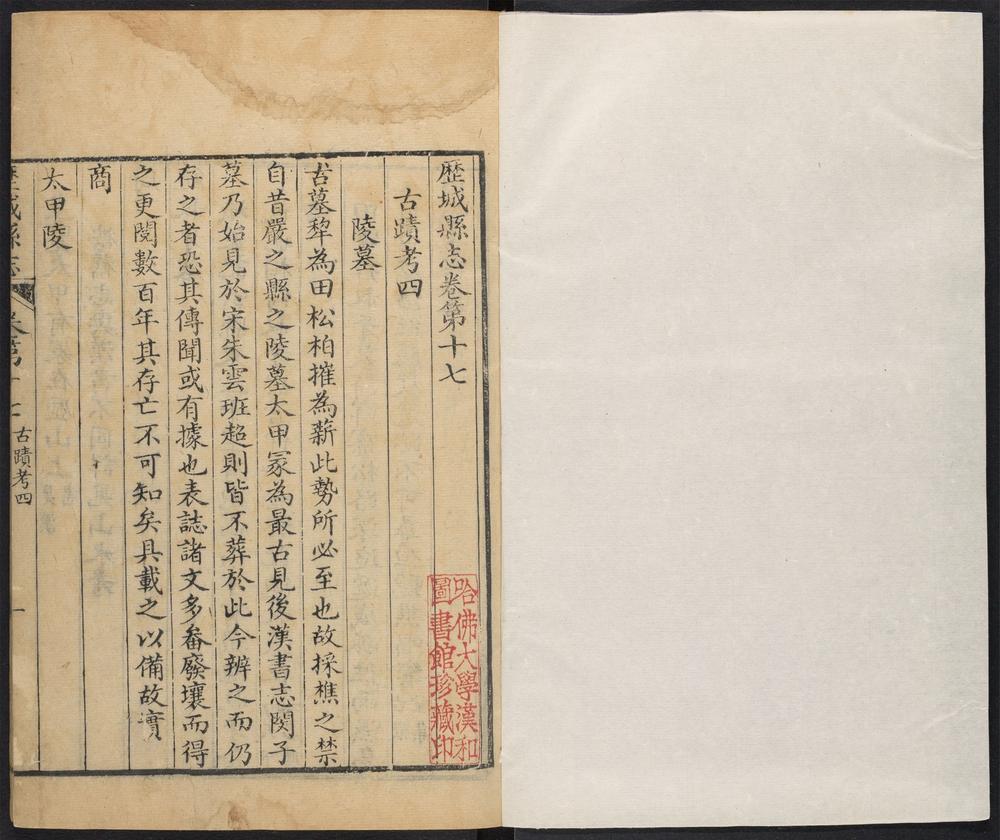 歷城縣志卷第十七
古蹟考四
陵墓
古墓犂為田松柏摧為薪此勢所必至也故採樵之禁
自昔嚴之縣之陵墓太甲冢為最古見後漢書志閔子
墓乃始見於宋朱雲班超則皆不葬於此今辨之而仍
存之者恐其傳聞或有據也表誌諸文多畚廢壤而得
之更閱數百年其存亡不可知矣具載之以備故實
商
太甲陵
歷城縣志
卷第十七
古蹟考四
一
哈佛大學漢和
圖書館珍藏印